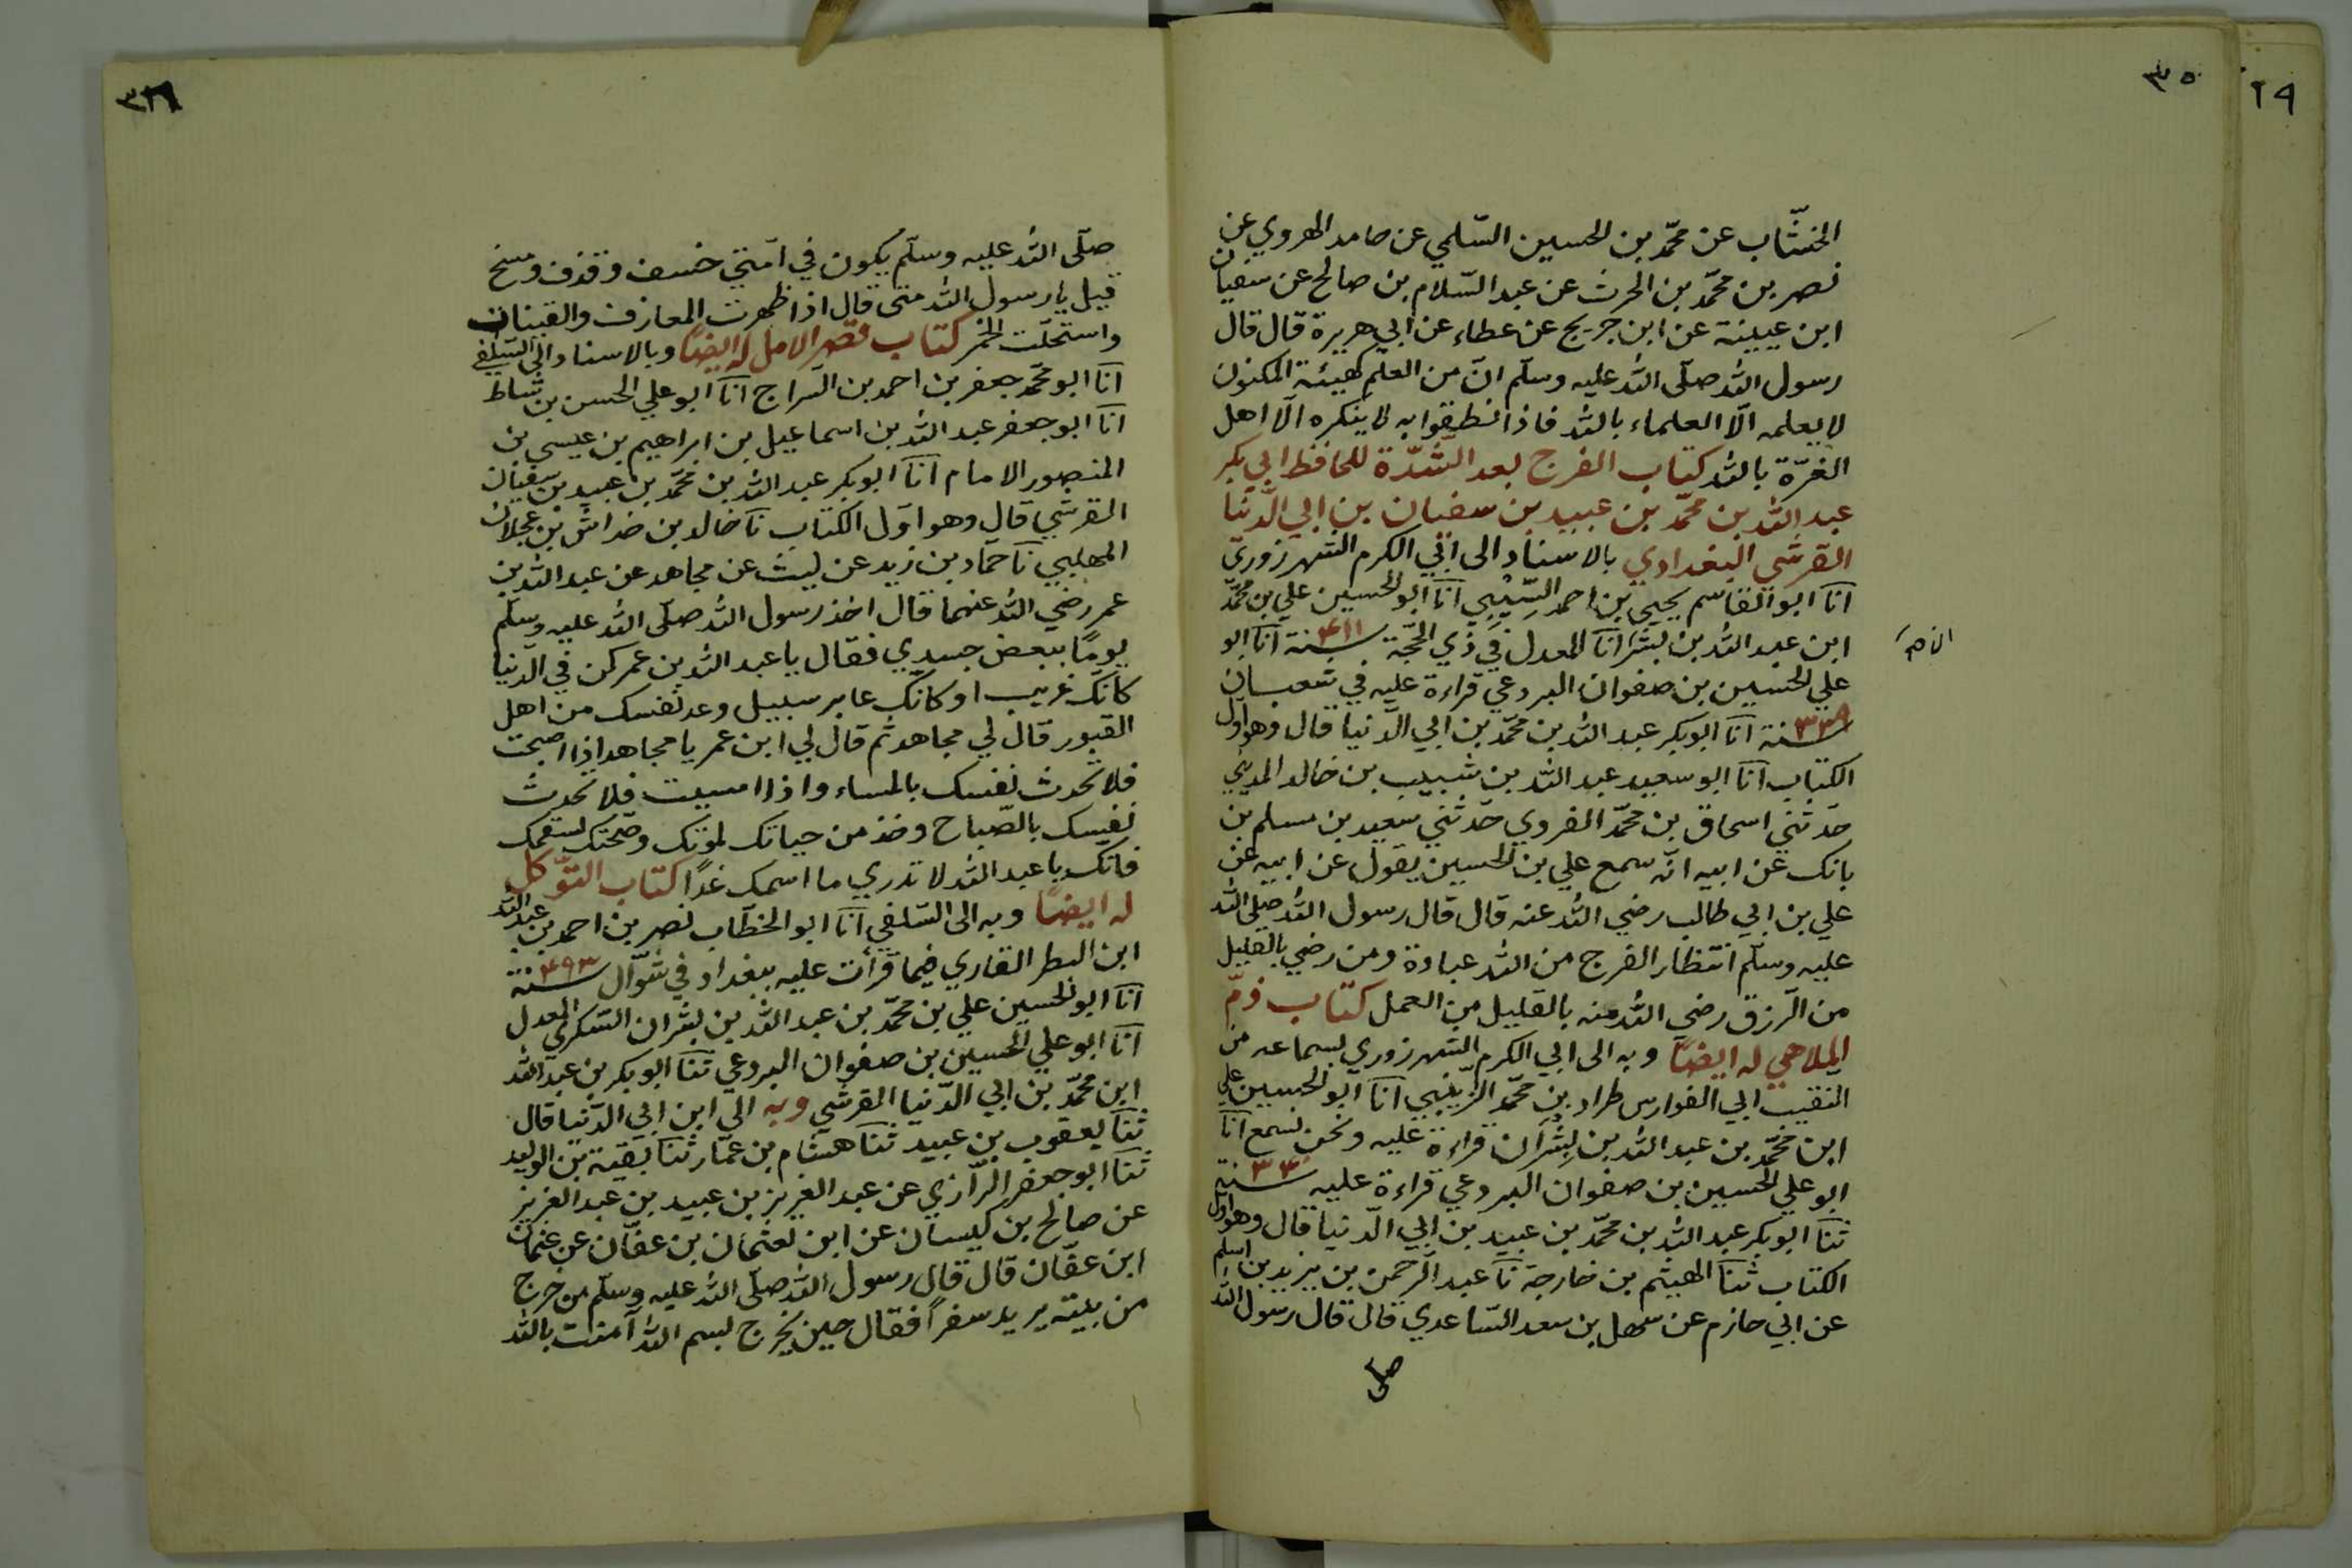 ٢٩
٣٥
الخشّاب عن محمّد بن الحسين السّلمي عن حامد الهروي عن
نصر بن محمّد بن الحرث عن عبد السّلام بن صالح عن سفيان
ابن عيينة عن ابن جريج عن عطاء عن ابي هريرة قال قال
رسول الله صلّى الله عليه وسلّم انّ من العلم كهيئة المكنون
لا يعلمه الّا العلماء بالله فاذا نطقوا به لا ينكره الّا اهل
الغرّة بالله كتاب الفرج بعد الشّدّة للحافظ ابي بكر
عبد الله بن محمّد بن عبيد بن سفيان بن ابي الدّنيا
القرشي البغدادي بالاسناد الى ابي الكرم الشهرزوري
انا ابو القاسم يحيى بن احمد السّيبي انا ابو الحسين علي بن محمّد
ابن عبد الله بن بشر انا المعدل في ذي الحجّة سنة ٤١١ انا ابو
علي الحسين بن صفوان البردعي قراءة عليه في شعبان
سنة ٣٣٩ انا ابو بكر عبد الله بن محمّد بن ابي الدّنيا قال وهو اوّل
الكتاب انا ابو سعيد عبد الله بن شبيب بن خالد المديني
حدّثني اسحاق بن محمّد الفروي حدّثني سعيد بن مسلم بن
بانك عن ابيه انّه سمع علي بن الحسين يقول عن ابيه عن
علي بن ابي طالب رضي الله عنه قال قال رسول الله صلى الله
عليه وسلّم انتظار الفرج من الله عبادة ومن رضي بالقليل
من الرّزق رضي الله منه بالقليل من العمل كتاب ذمّ
الملاهي له ايضًا وبه الى ابي الكرم الشهرزوري بسماعه من
النقيب ابي الفوارس طراد بن محمّد الزّينبي انا ابو الحسين علي
ابن محمّد بن عبد الله بن بشران قراءة عليه ونحن نسمع انا
ابو علي الحسين بن صفوان البردعي قراءة عليه سنة ٣٤٠
ثنا ابو بكر عبد الله بن محمّد بن عبيد بن ابي الدّنيا قال وهو اوّل
الكتاب ثنا الهيثم بن خارجة نا عبد الرّحمن بن يزيد بن اسلم
عن ابي حازم عن سهل بن سعد السّاعدي قال قال رسول الله
صلى
٣٢٦
صلّى الله عليه وسلّم يكون في امّتي خسف وقذف ومسخ
قيل يا رسول الله متى قال اذا ظهرت المعازف والقينات
واستحلّت الخمر كتاب قصر الامل له ايضًا وبالاسناد الى السّلفي
انا ابو محمّد جعفر بن احمد بن السّراج انا ابو علي الحسن بن شاط
انا ابو جعفر عبد الله بن اسماعيل بن ابراهيم بن عيسى بن
المنصور الامام انا ابو بكر عبد الله بن محمّد بن عبيد بن سفيان
القرشي قال وهو اوّل الكتاب نا خالد بن خداش بن عجلان
المهلبي نا حمّاد بن زيد عن ليث عن مجاهد عن عبد الله بن
عمر رضي الله عنهما قال اخذ رسول الله صلّى الله عليه وسلّم
يومًا ببعض جسدي فقال يا عبد الله بن عمر كن في الدّنيا
كانّك غريب او كانك عابر سبيل وعد نفسك من اهل
القبور قال لي مجاهد ثم قال لي ابن عمر يا مجاهد اذا اصبحت
فلا تحدث نفسك بالمساء واذا امسيت فلا تحدث
نفسك بالصّباح وخذ من حياتك لموتك وصحّتك لسقمك
فانك يا عبد الله لا تدري ما اسمك غدًا كتاب التّوكل
له ايضًا وبه الى السّلفي انا ابو الخطّاب نصر بن احمد بن عبد الله
ابن البطر القاري فيما قرأت عليه ببغداد في شوّال سنة ٤٩٣
انا ابو الحسين علي بن محمّد بن عبد الله بن بشران السّكري المعدل
انا ابو علي الحسين بن صفوان البردعي ثنا ابو بكر بن عبد الله
ابن محمّد بن ابي الدّنيا القرشي وبه الى ابن ابي الدّنيا قال
ثنا يعقوب بن عبيد ثنا هشام بن عمّار ثنا بقية بن الوليد
ثنا ابو جعفر الرّازي عن عبد العزيز بن عبيد بن عبد العزيز
عن صالح بن كيسان عن ابن لعثمان بن عفّان عن عثمان
ابن عفّان قال قال رسول الله صلّى الله عليه وسلّم من خرج
من بيته يريد سفرًا فقال حين يخرج بسم الله آمنت بالله